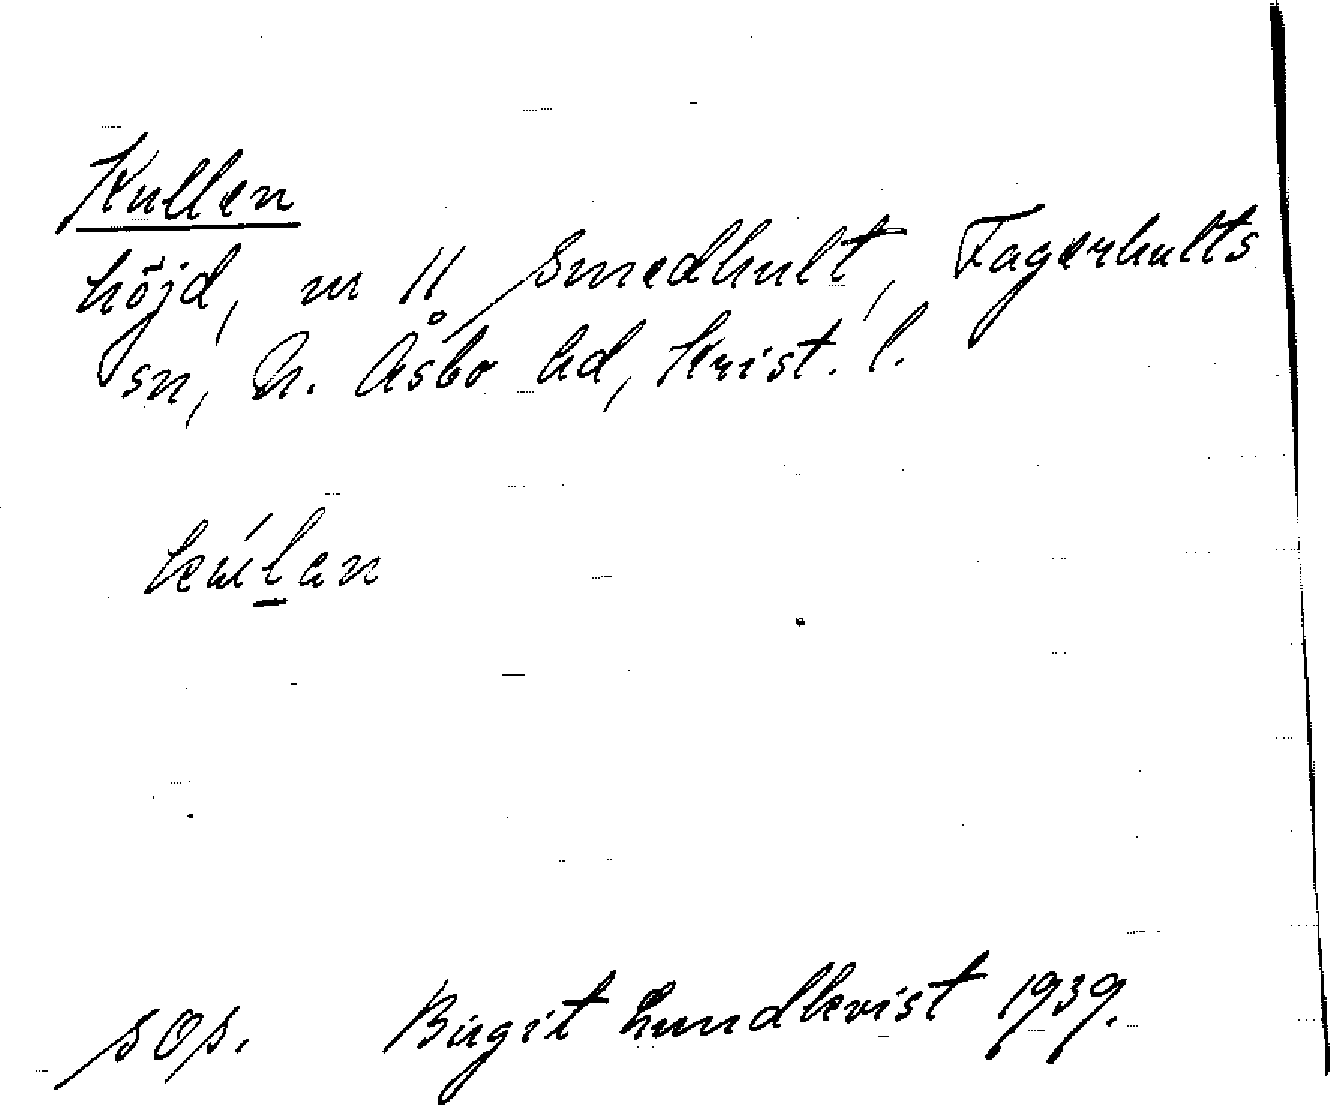 Kullen
höjd, m 11 Smedhult, Fagerhults
sn, N. Åsbo hd, Krist. l.
kúl̲an
SOS.
Birgit Lundkvist 1939.